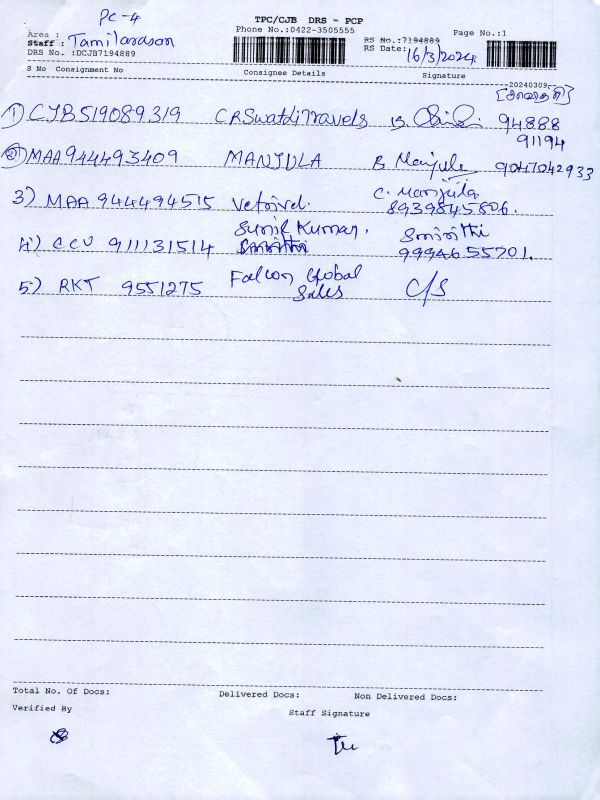 PC-4
TPC/CJB DRS - PCP
Phone No.:0422-3505555
Page No.:1
Area :
Staff : Tamilarasan
DRS No. :DCJB7194889
RS No.:7194889
RS Date: 16/3/2024
S No Consignment No Consignee Details Signature
20240309
1) CJB519089319 CR Swathi Travels 94888
91194
2) MAA944493409 MANJULA B. Manjula 9047042933
3) MAA 944494515 Vetrivel. C. Manjula
8939845806.
4) CCU 911131514 Sunil Kumar. Smirithi
Smirithi 9994655701.
5) RKT 9551275 Falcon Global
Sales C/S
Total No. Of Docs: Delivered Docs: Non Delivered Docs:
Verified By Staff Signature